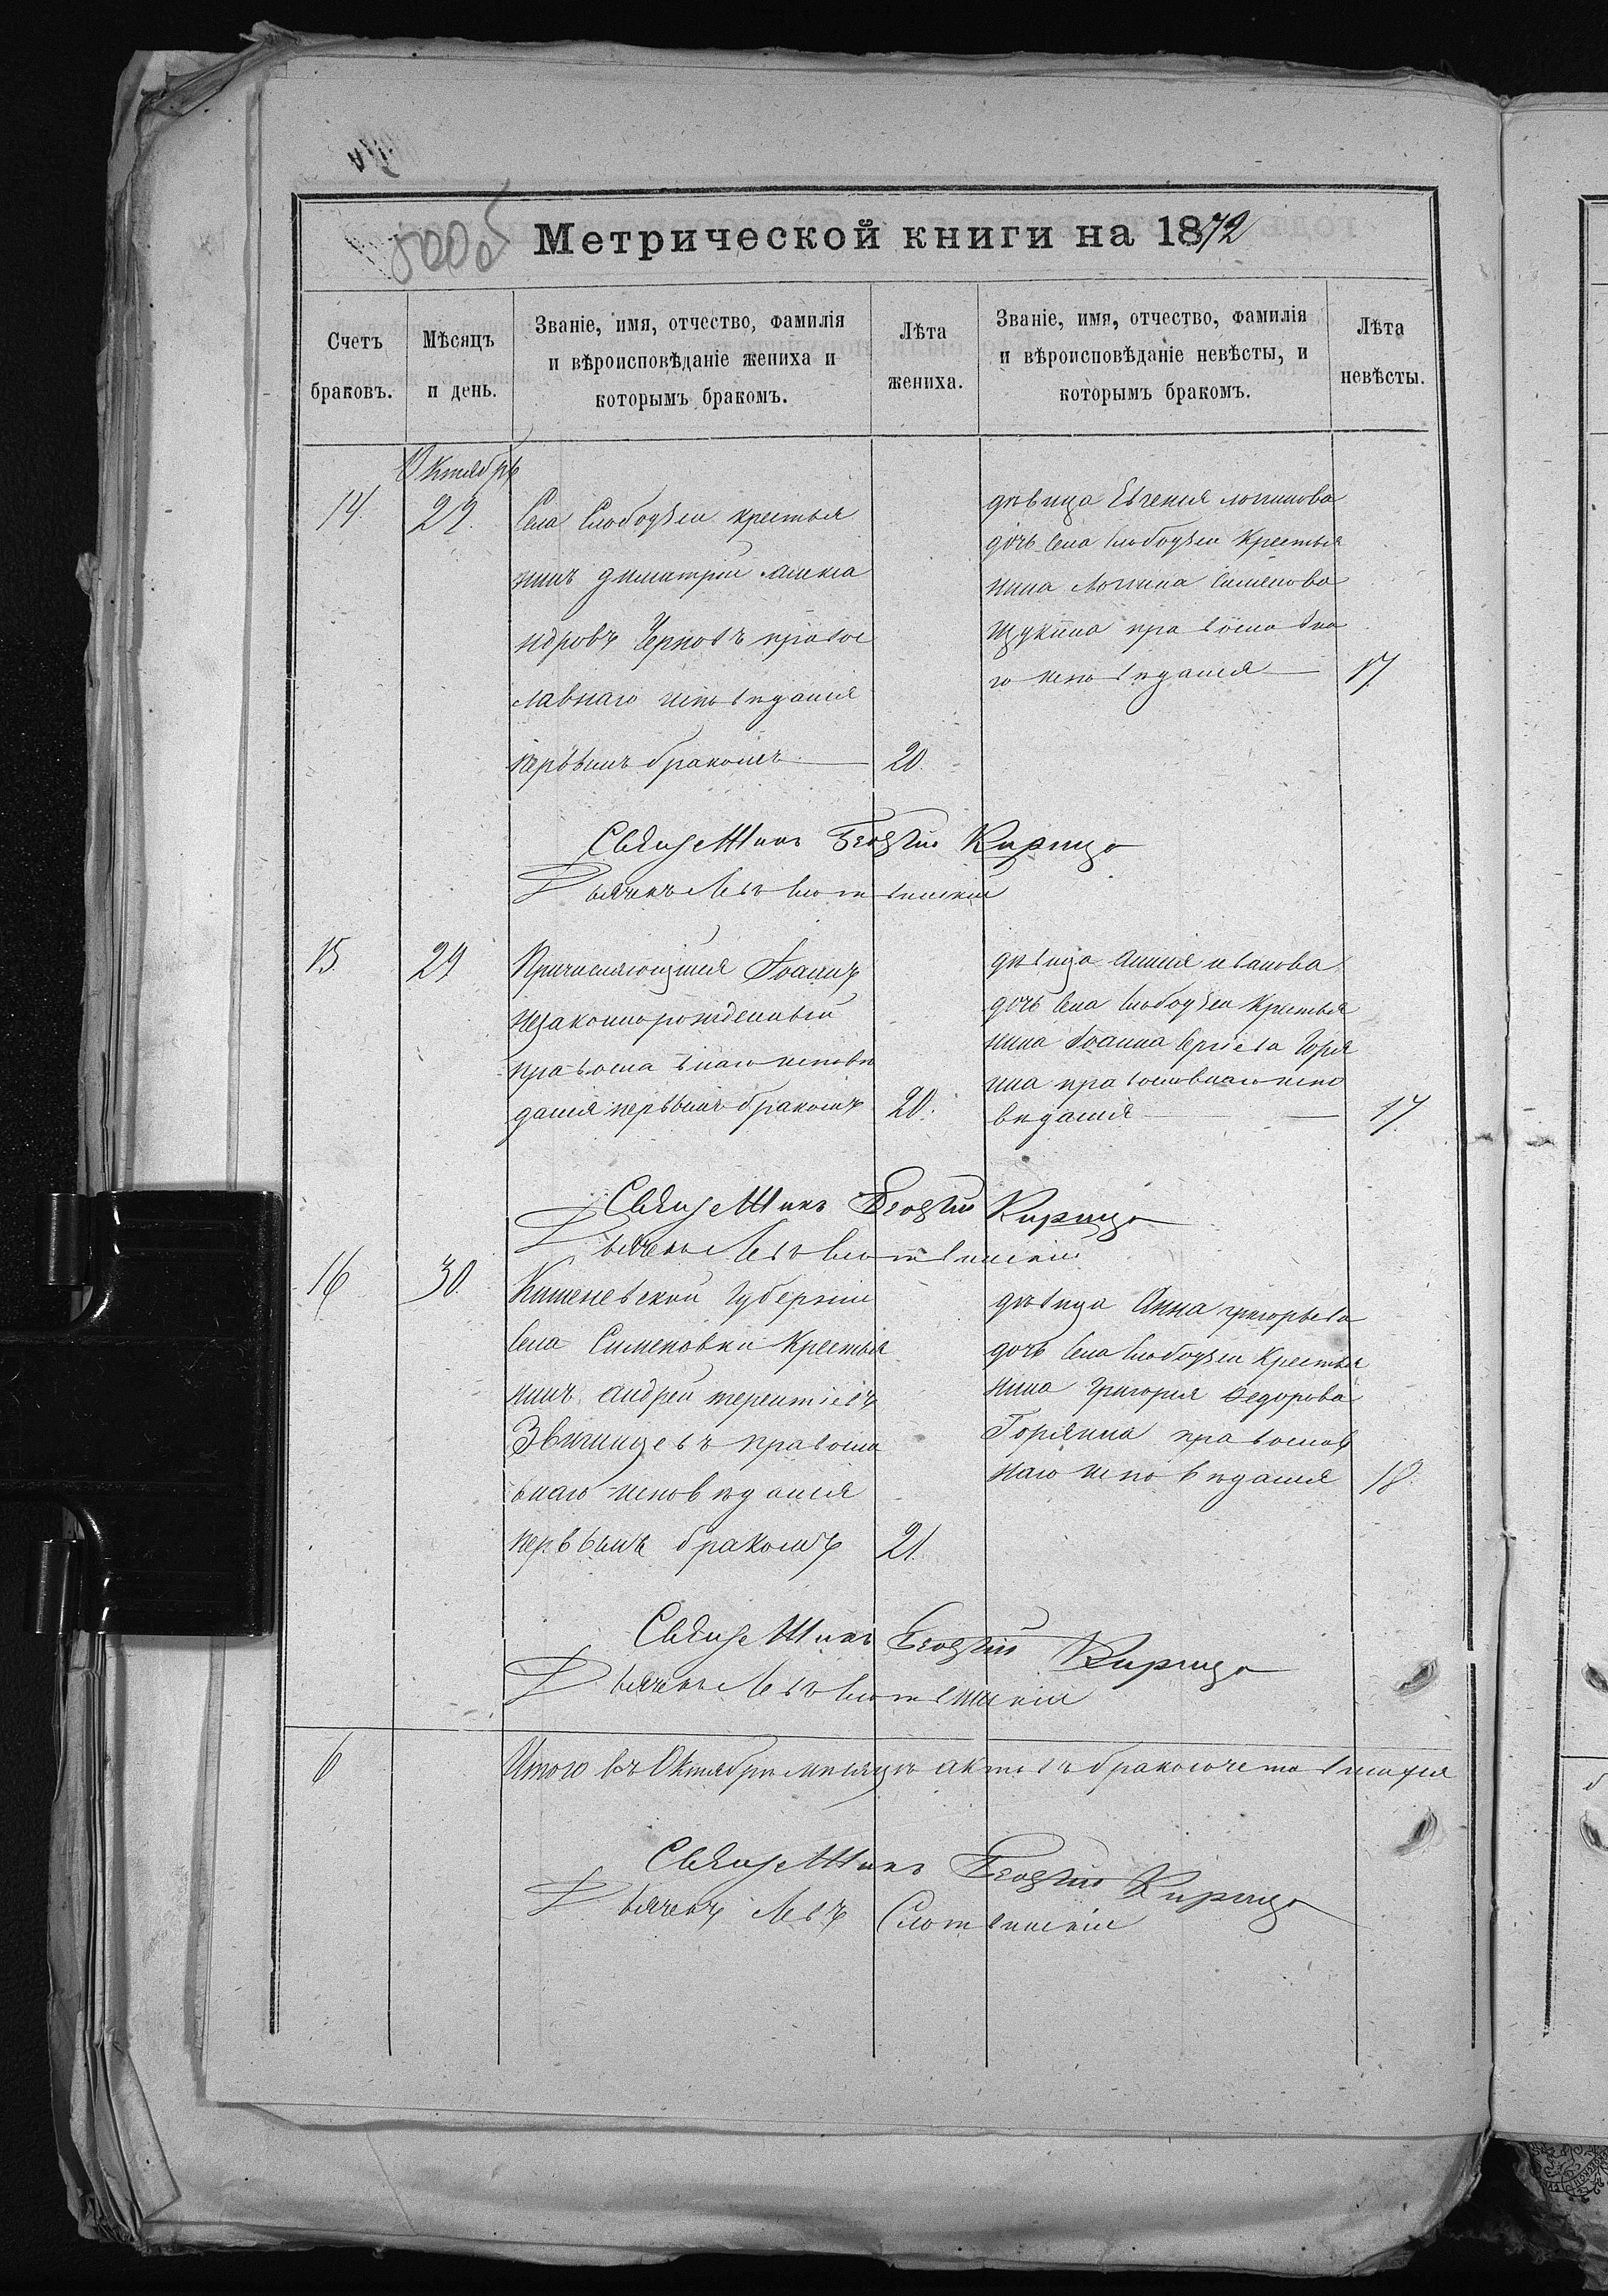 Метрической книги на 1872
Счетъ браковъ.
Мѣсяцъ и день.
Званіе, имя, отчество, фамилія и вѣроисповѣданіе жениха и которымъ бракомъ.
Лѣта жениха.
Званіе, имя, отчество, фамилія и вѣроисповѣданіе невѣсты, и которымъ бракомъ.
Лѣта невѣсты.
Октябрь
14.
29.
Села Слободзеи крестья
нинъ димитрій алекса
ндровъ Черновъ правос
лавнаго исповѣданія
первымъ бракомъ
20.
дѣвица Евгенія логинова
дочь села Слободзеи Крестья
нина Логина Сименова
Щукина православна
го исповѣданія
17
Священникъ Георгій
Дьячекъ Левъ
15.
29
Причисляющійся Іоаннъ
незаконнорожденный
православнаго исповѣ
данія первымъ бракомъ
20.
дѣвица Анна иванова
дочь села Слободзеи Крестья
нина Іоанна Сергіева Горя
ина православнаго испо
вѣданія
17.
Священникъ Георгій
Дьячекъ Левъ
16
30.
Кишеневской Губерніи
села Сименовки Крестья
нинъ андрей терентіевъ
Звягинцевъ правосла
внаго исповѣданія
первымъ бракомъ
21.
дѣвица Анна григорьева
дочь села Слободзеи Крестья
нина Григорія Ѳедорова
Горяина православ
наго исповѣданія
18.
Священникъ Георгій
Дьячекъ Левъ
6
Итого въ Октябрѣ мѣсяцѣ актовъ бракосочетавшихся
Священникъ Георгій
Дьячекъ Левъ